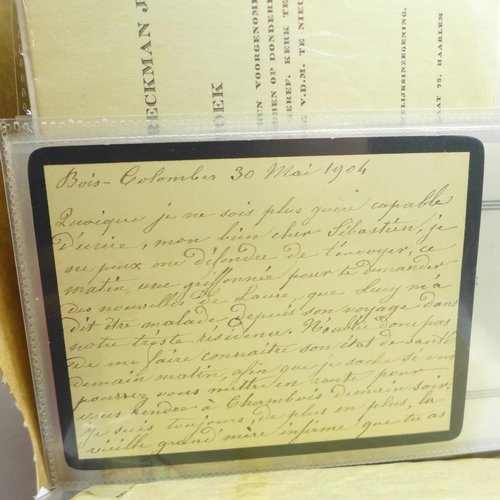 RECKMAN J
OEK
EN VOORGENOME
EN OP DONDERD
GEREF. KERK TE
V.D.M. TE NIEU
ELIJKSINZEGENING,
AAT 75, HAARLEM
Bois-Colombes 30 Mai 1904
Quoique je ne sois plus guère capable
d'écrire, mon bien cher Sébastien, je
ne peux me défendre de t'envoyer, ce
matin, une griffonnée pour te demander
des nouvelles de Laure, que Lucy m'a
dit être malade depuis son voyage dans
notre triste résidence. N'oublie donc pas
de me faire connaître son état de santé
demain matin, afin que je sache si vous
pourrez vous mettre en route pour
vous rendre à Chambois demain soir.
Je suis toujours, de plus en plus, la
vieille grand'mère infirme que tu as